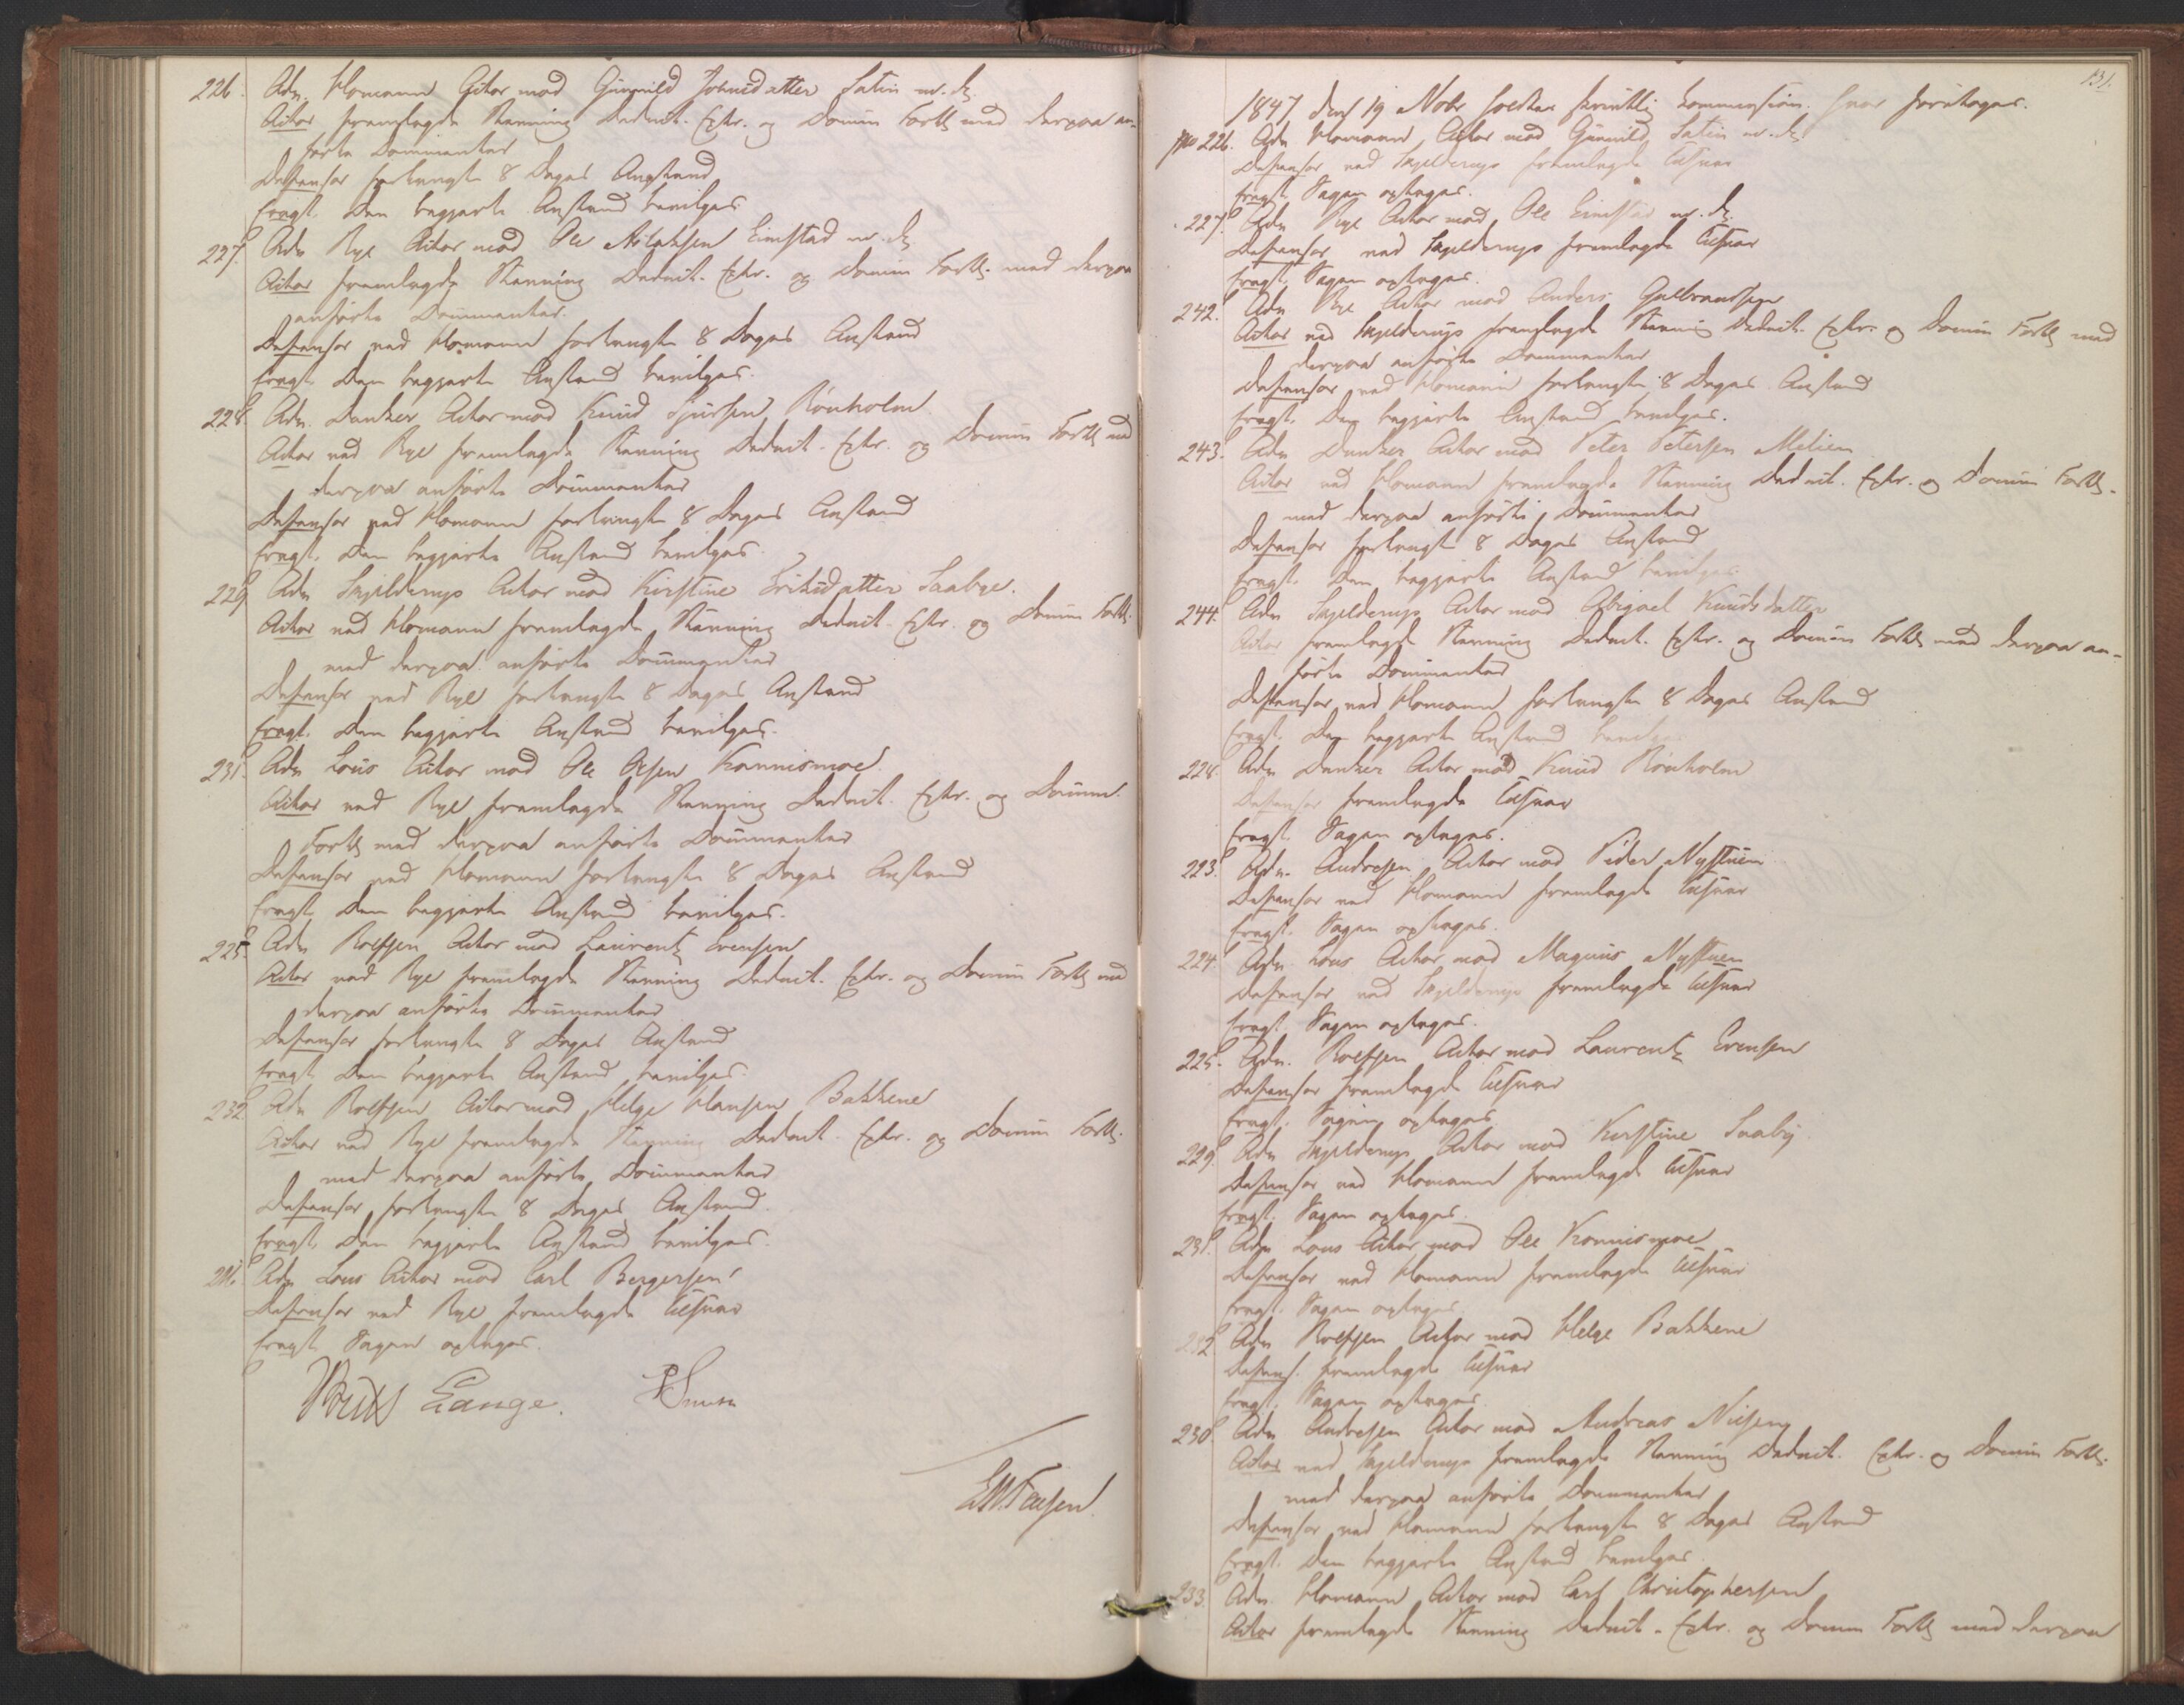 226. Adv. Homann Actor mod Gunnild Johnsdatter Satin m. fl.
Actor fremlagde Stevning Deduct. Extr. og Docum Fortt med derpaa an-
førte Documenter
Defensor forlangte 8 Dages Anstand
Eragt. Den begjærte Anstand bevilges.
227. Adv Rye Actor mod Ole Aslaksen Eimstad m. fl.
Actor fremlagde Stevning Deduct. Extr. og Docum Fortt. med derpaa
anførte Documenter.
Defensor ved Homann forlangte 8 Dages Anstand
Eragt. Den begjærte Anstand bevilges.
228. Adv. Dunker Actor mod Knud Sjursen Rønholm
Actor ved Rye fremlagde Stevning Deduct. Extr. og Docum Fortt med
derpaa anførte Documenter
Defensor ved Homann forlangte 8 Dages Anstand
Eragt. Den begjærte Anstand bevilges.
229 Adv Skjelderup Actor mod Kirstine Eriksdatter Saabye.
Actor ved Homann fremlagde Stevning Deduct. Extr. og Docum Fortt.
med derpaa anførte Documenter
Defensor ved Rye forlangte 8 Dages Anstand
Eragt. Den begjærte Anstand bevilges.
231. Adv Lous Actor mod Ole Olsen Konnismoe
Actor ved Rye fremlagde Stevning Deduct. Extr. og Docum.
Fortt med derpaa anførte Documenter
Defensor ved Homann forlangte 8 Dages Anstand
Eragt. Den begjærte Anstand bevilges.
225. Adv Rolfsen Actor mod Laurentz Evensen
Actor ved Rye fremlagde Stevning Deduct. Extr. og Docum Fortt med
derpaa anførte Documenter
Defensor forlangte 8 Dages Anstand
Eragt. Den begjærte Anstand bevilges.
232 Adv Rolfsen Actor mod Helge Hansen Bakkene
Actor ved Rye fremlagde Stevning Deduct. Extr. og Docum Fortt.
med derpaa anførte Documenter
Defensor forlangte 8 Dages Anstand.
Eragt. Den begjærte Anstand bevilges.
Adv Lous Actor mod Carl Bergersen
Defensor ved Rye fremlagde Tilsvar
Eragt. Sagen optages.
Lange.
131.
1847 den 19 Novbr holdtes skriftlig Commission. hvor foretoges.
No 226. Adv Homann Actor mod Gunnild Satin m. fl
Defensor ved Skjelderup fremlagde Tilsvar
Eragt. Sagen optages.
227. Adv Rye Actor mod Ole Eimstad m. fl.
Defensor ved Skjelderup fremlagde Tilsvar
Eragt. Sagen optages.
242. Adv Rye Actor mod Anders Gulbrandsen
Actor ved Skjelderup fremlagde Stevning Deduct. Extr. og Docum Fortt med
derpaa anførte Documenter
Defensor ved Homann forlangte 8 Dages Anstand
Eragt. Den begjærte Anstand bevilges.
243. Adv Dunker Actor mod Peter Petersen Melien
Actor ved Homann fremlagde Stevning Deduct. Extr. og Docum Fortt.
med derpaa anførte Documenter
Defensor forlangte 8 Dages Anstand
Eragt. Den begjærte Anstand bevilges
244. Adv Skjelderup Actor mod Abigael Knudsdatter
Actor fremlagde Stevning Deduct. Extr. og Docum Fortt med derpaa an-
førte Documenter
Defensor ved Homann forlangte 8 Dages Anstand
Eragt. Den begjærte Anstand bevilges
228. Adv Dunker Actor mod Knud Rønholm
Defensor fremlagde Tilsvar
Eragt. Sagen optages.
223. Adv. Andresen Actor mod Peder Nystuen
Defensor ved Homann fremlagde Tilsvar
Eragt. Sagen optages.
224. Adv. Lous Actor mod Magnus Nystuen
Defensor ved Skjelderup fremlagde Tilsvar
Eragt. Sagen optages.
225. Adv. Rolfsen Actor mod Laurentz Evensen
Defensor fremlagde Tilsvar
Eragt. Sagen optages
229. Adv Skjelderup Actor mod Kirstine Saaby
Defensor ved Homann fremlagde Tilsvar
Eragt. Sagen optages.
231. Adv Lous Actor mod Ole Konnismoe
Defensor ved Homann fremlagde Tilsvar
Eragt. Sagen optages
232 Adv Rolfsen Actor mod Helge Bakkene
Defens. fremlagde Tilsvar
Eragt. Sagen optages.
230. Adv Andresen Actor mod Andreas Nielsen
Actor ved Skjelderup fremlagde Stevning Deduct. Extr. og Docum Fortt.
med derpaa anførte Documenter
Defensor ved Homann forlangte 8 Dages Anstand
Eragt. Den begjærte Anstand bevilges
233. Adv. Homann Actor mod Carl Christophersen
Actor fremlagde Stevning Deduct. Extr. og Docum Fortt med derpaa